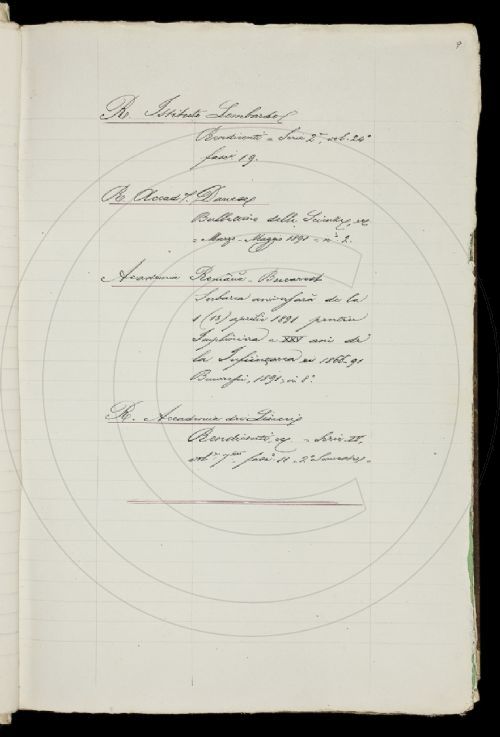 9
R. Istituto Lombardo
Rendiconti = Serie 2ª, vol. 24°
fasc. 19.
R. Accad. Danese
Bullettino delle Scienze,
= Marzo - Maggio 1891 = n. 2.
Academia Română - Bucarest
Serbarea aniversară de la
1 (13) aprilie 1891 pentru
Împlinirea a XXV ani de
la Înfiinţarea ei 1866-91
Bucuresci, 1891, in 8°.
R. Accademia dei Lincei
Rendiconti, = Serie IV,
vol. 7° fasc. 11 - 2° Semestre =